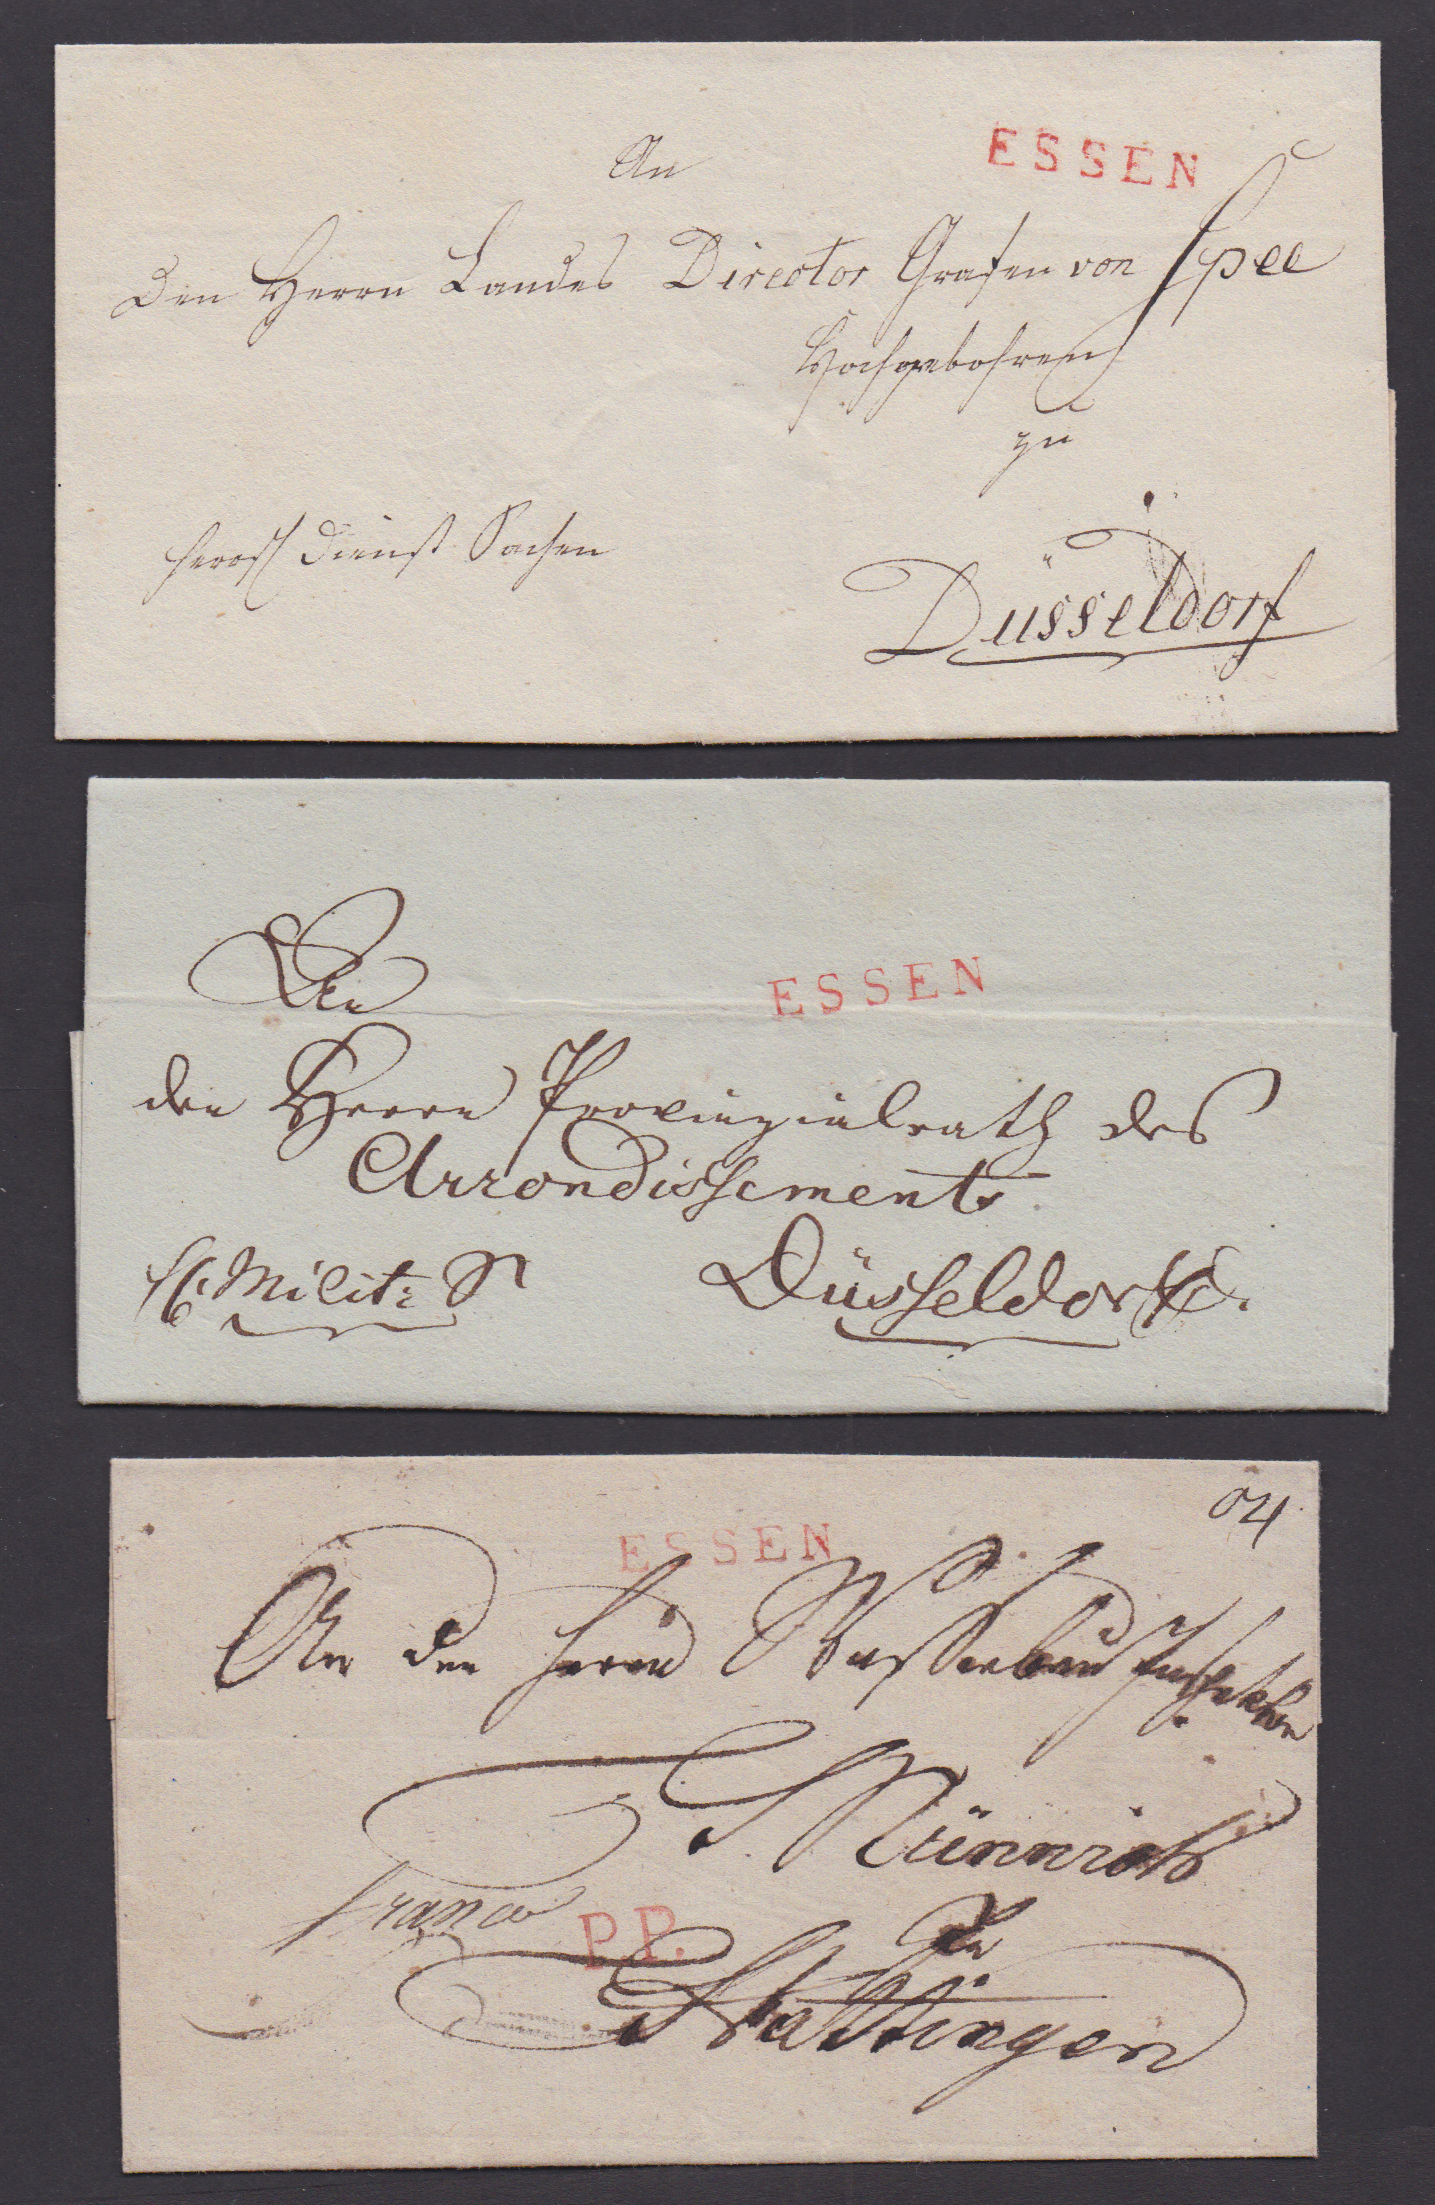 ESSEN
An
Den Herrn Landes Director Grafen von Spee
Hochgebohren
zu
herrsch Dienst Sachen
Düsseldorf
ESSEN
An
den Herrn Provinzialrath des
Arrondissements
Milit: S
Düsseldorf
ESSEN
An den Herrn Wasserbau Inspektor
franco
P.P.
zu
Hattingen